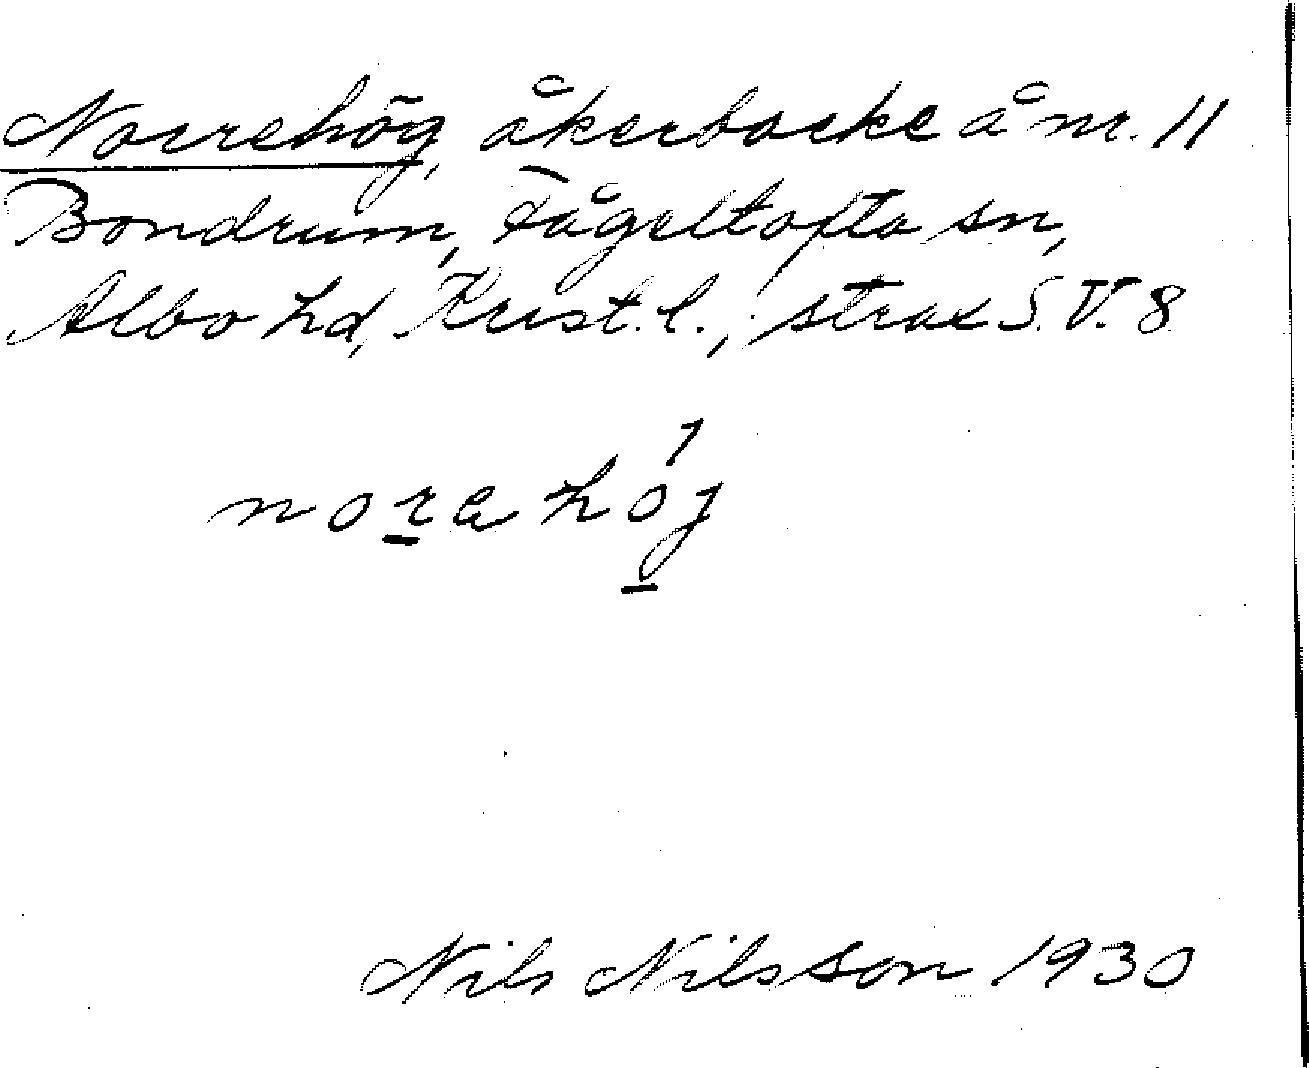 Norrehög, åkerbacke å nr. 11
Bondrum, Fågeltofta sn,
Albo hd, Krist. l., strax S.V. 8
norahöj
Nils Nilsson 1930